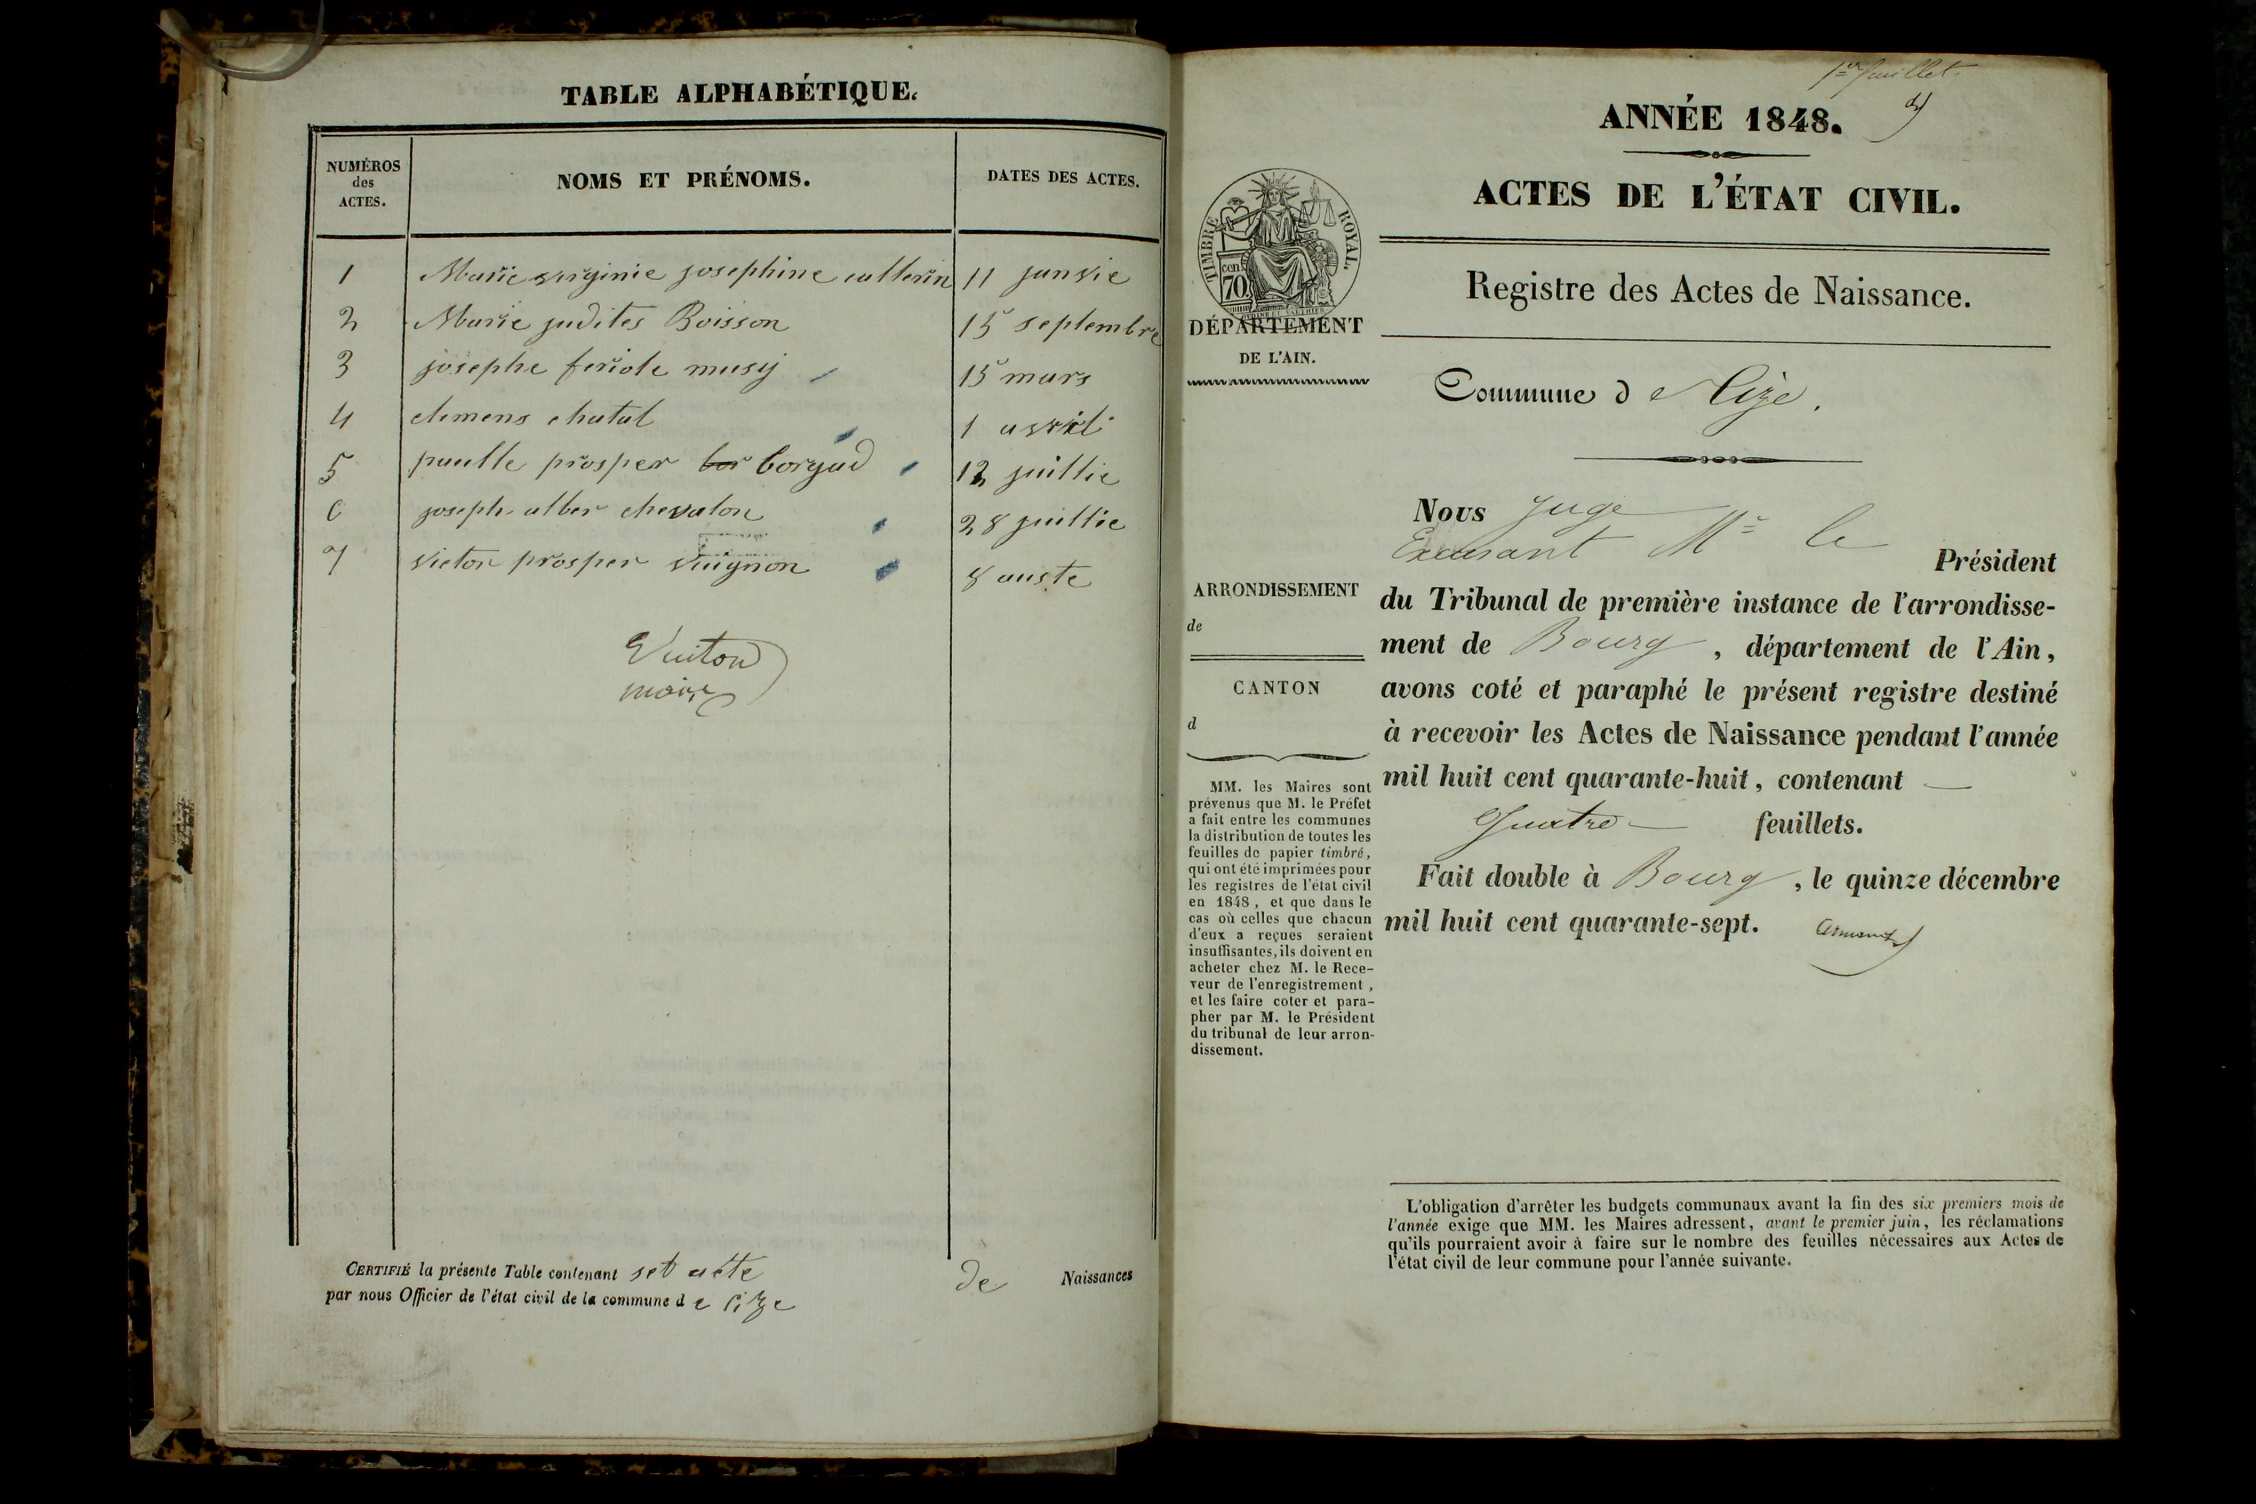 TABLE ALPHABÉTIQUE.
NUMÉROS des ACTES.
NOMS ET PRÉNOMS.
DATES DES ACTES.
1 Marie virginie josephine catterin 11 janvie
2 Marie judites Boisson 15 septembre
3 josephe feriole musy 15 mars
4 clemens chatal 1 avril
5 paulle prosper bor borgad 12 juillie
6 joseph alber chevalon 28 juillie
7 victor prosper vuignon 8 auste
Vuiton
maire
CERTIFIÉ la présente Table contenant set acte de Naissances
par nous Officier de l'état civil de la commune d e Cize
1er feuillet
ANNÉE 1848.
ACTES DE L'ÉTAT CIVIL.
TIMBRE ROYAL.
cen. 70
Registre des Actes de Naissance.
DÉPARTEMENT
DE L'AIN.
Commune d e Cize.
Nous Juge
Mr le Président
du Tribunal de première instance de l'arrondisse-
ment de Bourg, département de l'Ain,
avons coté et paraphé le présent registre destiné
à recevoir les Actes de Naissance pendant l'année
mil huit cent quarante-huit, contenant
quatre feuillets.
Fait double à Bourg, le quinze décembre
mil huit cent quarante-sept.
ARRONDISSEMENT
de
CANTON
d
MM. les Maires sont
prévenus que M. le Préfet
a fait entre les communes
la distribution de toutes les
feuilles de papier timbré,
qui ont été imprimées pour
les registres de l'état civil
en 1848, et que dans le
cas où celles que chacun
d'eux a reçues seraient
insuffisantes, ils doivent en
acheter chez M. le Rece-
veur de l'enregistrement,
et les faire coter et para-
pher par M. le Président
du tribunal de leur arron-
dissement.
L'obligation d'arrêter les budgets communaux avant la fin des six premiers mois de
l'année exige que MM. les Maires adressent, avant le premier juin, les réclamations
qu'ils pourraient avoir à faire sur le nombre des feuilles nécessaires aux Actes de
l'état civil de leur commune pour l'année suivante.